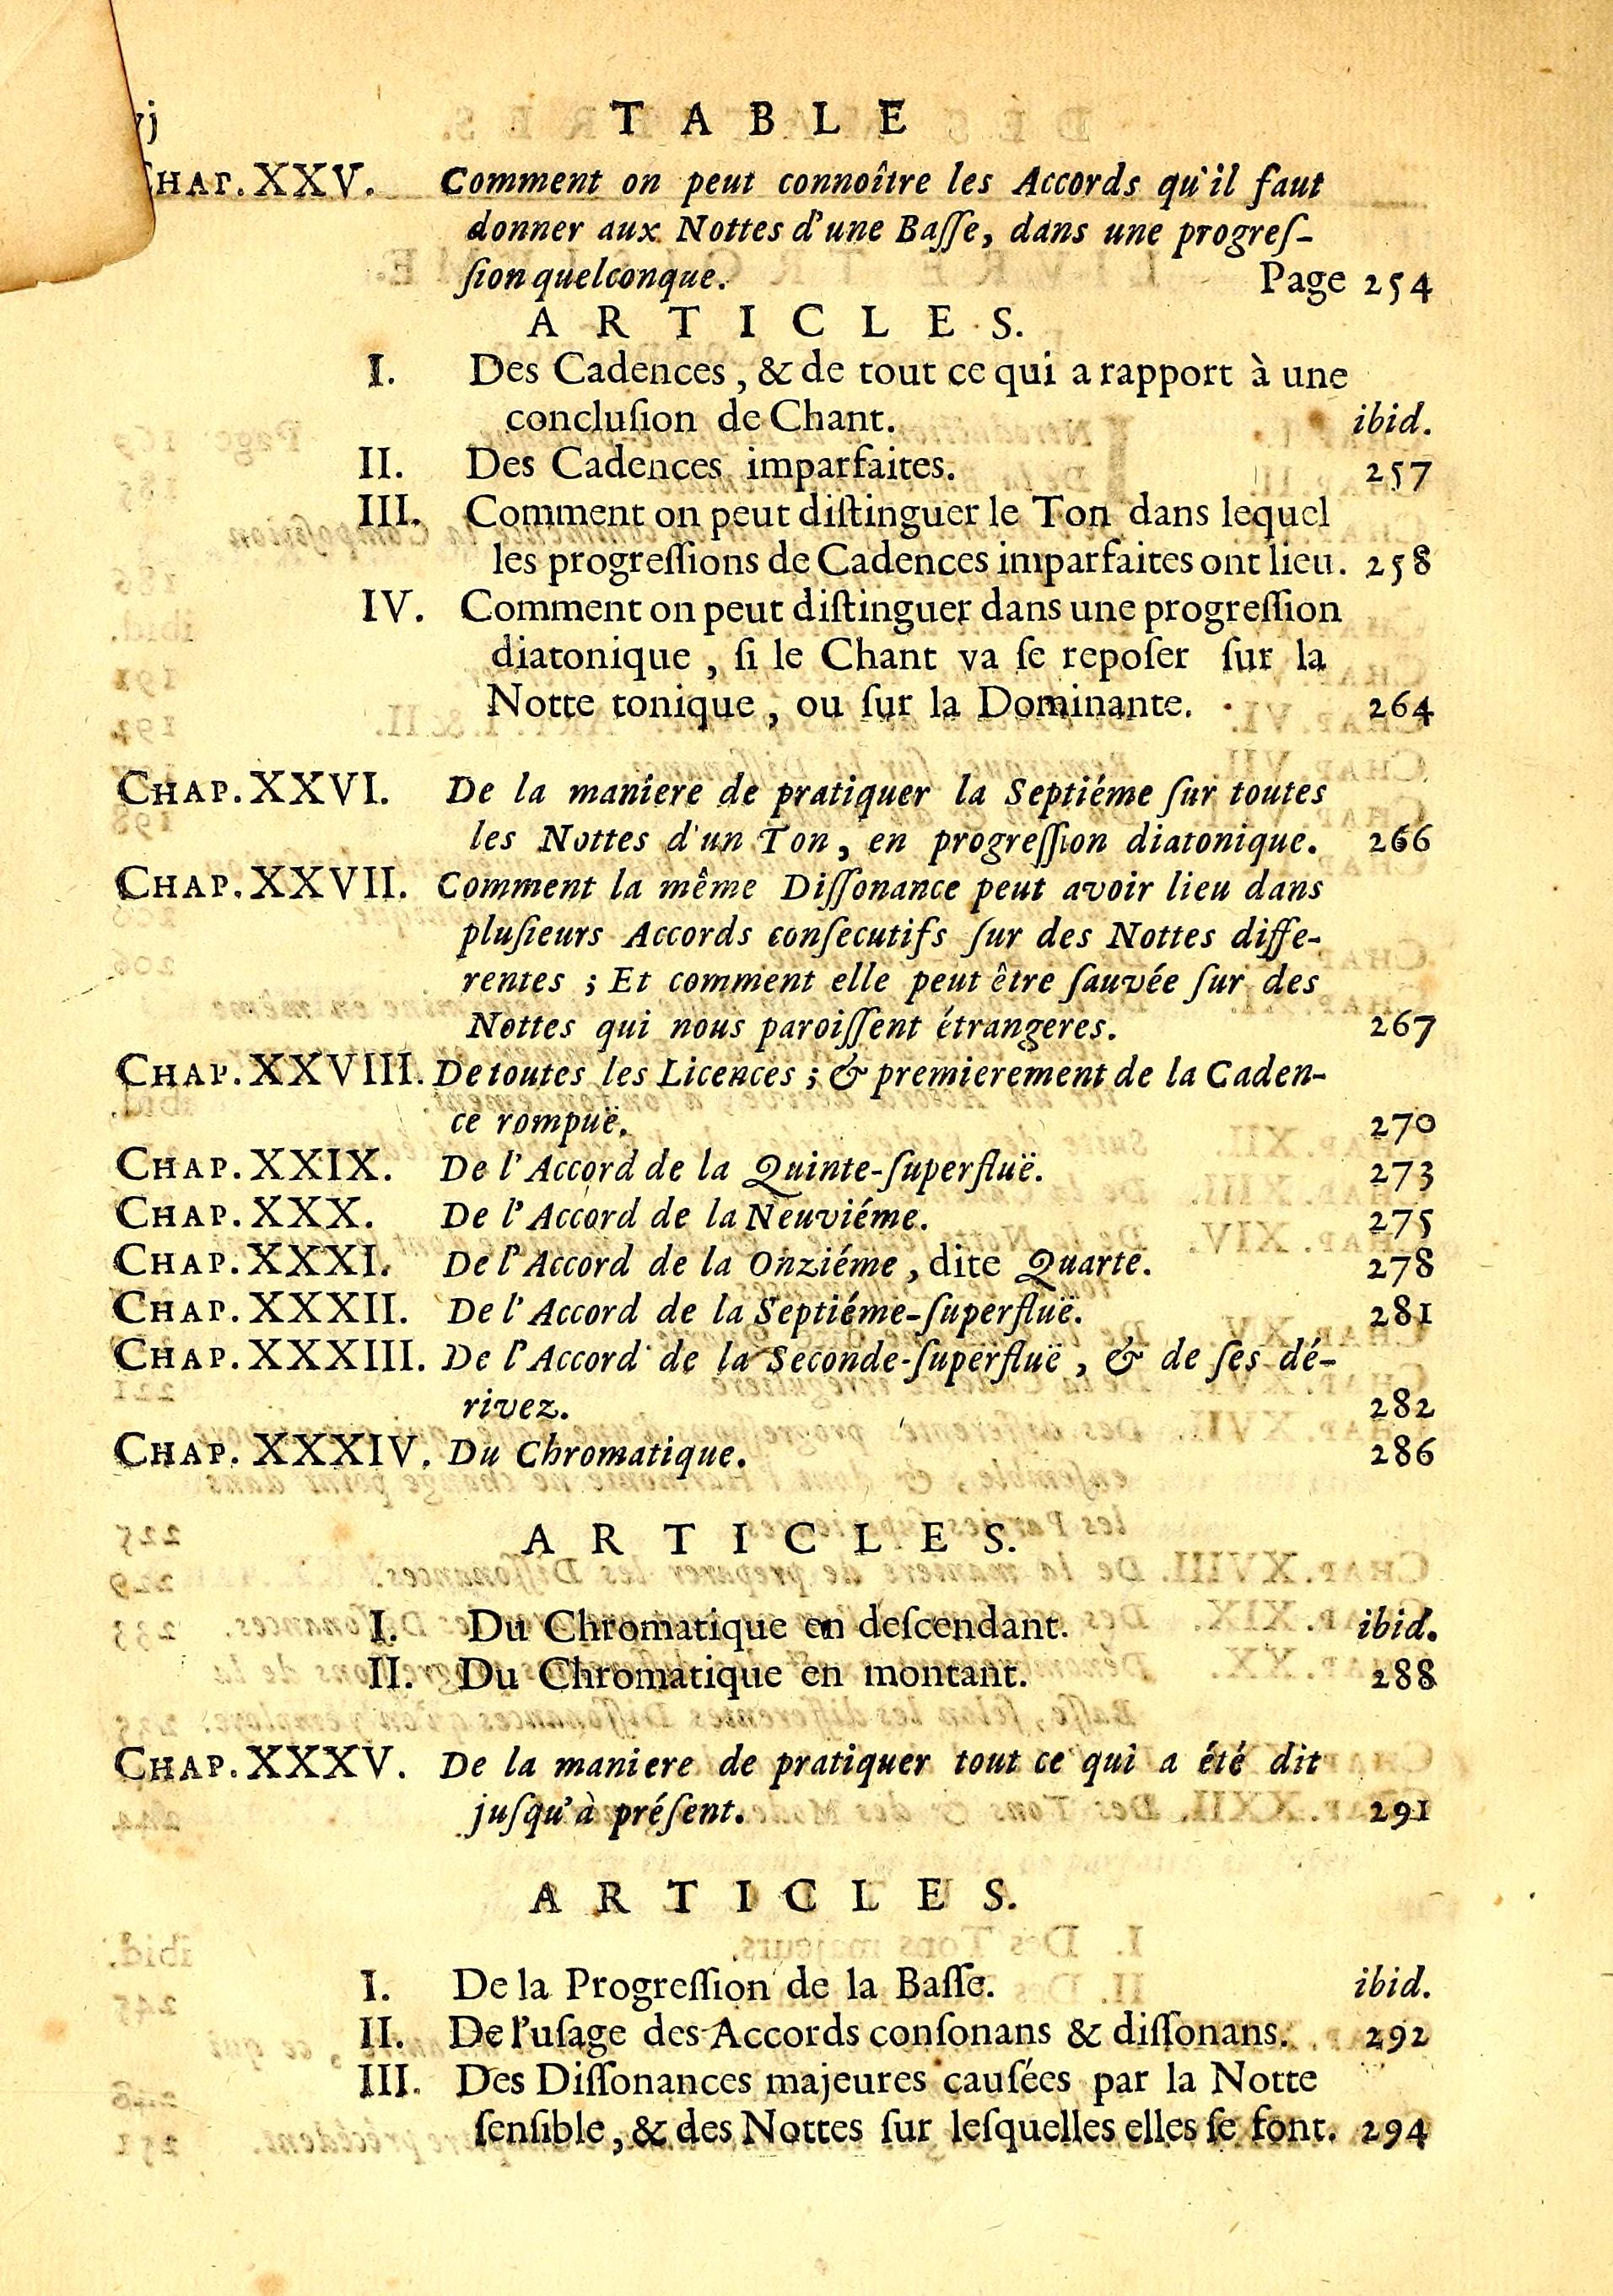 TABLE
CHAP. XXV. Comment on peut connoître les Accords qu'il faut
donner aux Nottes d'une Baſſe, dans une progreſ-
ſion quelconque. Page 254
ARTICLES.
I. Des Cadences, & de tout ce qui a rapport à une
concluſion de Chant. ibid.
II. Des Cadences imparfaites. 257
III. Comment on peut diſtinguer le Ton dans lequel
les progreſſions de Cadences imparfaites ont lieu. 258
IV. Comment on peut diſtinguer dans une progreſſion
diatonique, ſi le Chant va ſe repoſer ſur la
Notte tonique, ou ſur la Dominante. 264
CHAP. XXVI. De la maniere de pratiquer la Septiéme ſur toutes
les Nottes d'un Ton, en progreſſion diatonique. 266
CHAP. XXVII. Comment la même Diſſonance peut avoir lieu dans
pluſieurs Accords conſecutifs ſur des Nottes diffe-
rentes ; Et comment elle peut être ſauvée ſur des
Nottes qui nous paroiſſent étrangeres. 267
CHAP. XXVIII. De toutes les Licences ; & premierement de la Caden-
ce rompuë. 270
CHAP. XXIX. De l'Accord de la Quinte-ſuperfluë. 273
CHAP. XXX. De l'Accord de la Neuviéme. 275
CHAP. XXXI. De l'Accord de la Onziéme, dite Quarte. 278
CHAP. XXXII. De l'Accord de la Septiéme-ſuperfluë. 281
CHAP. XXXIII. De l'Accord de la Seconde-ſuperfluë, & de ſes dé-
rivez. 282
CHAP. XXXIV. Du Chromatique. 286
ARTICLES.
I. Du Chromatique en deſcendant. ibid.
II. Du Chromatique en montant. 288
CHAP. XXXV. De la maniere de pratiquer tout ce qui a été dit
juſqu'à préſent. 291
ARTICLES.
I. De la Progreſſion de la Baſſe. ibid.
II. De l'uſage des Accords conſonans & diſſonans. 292
III. Des Diſſonances majeures cauſées par la Notte
ſenſible, & des Nottes ſur leſquelles elles ſe font. 294